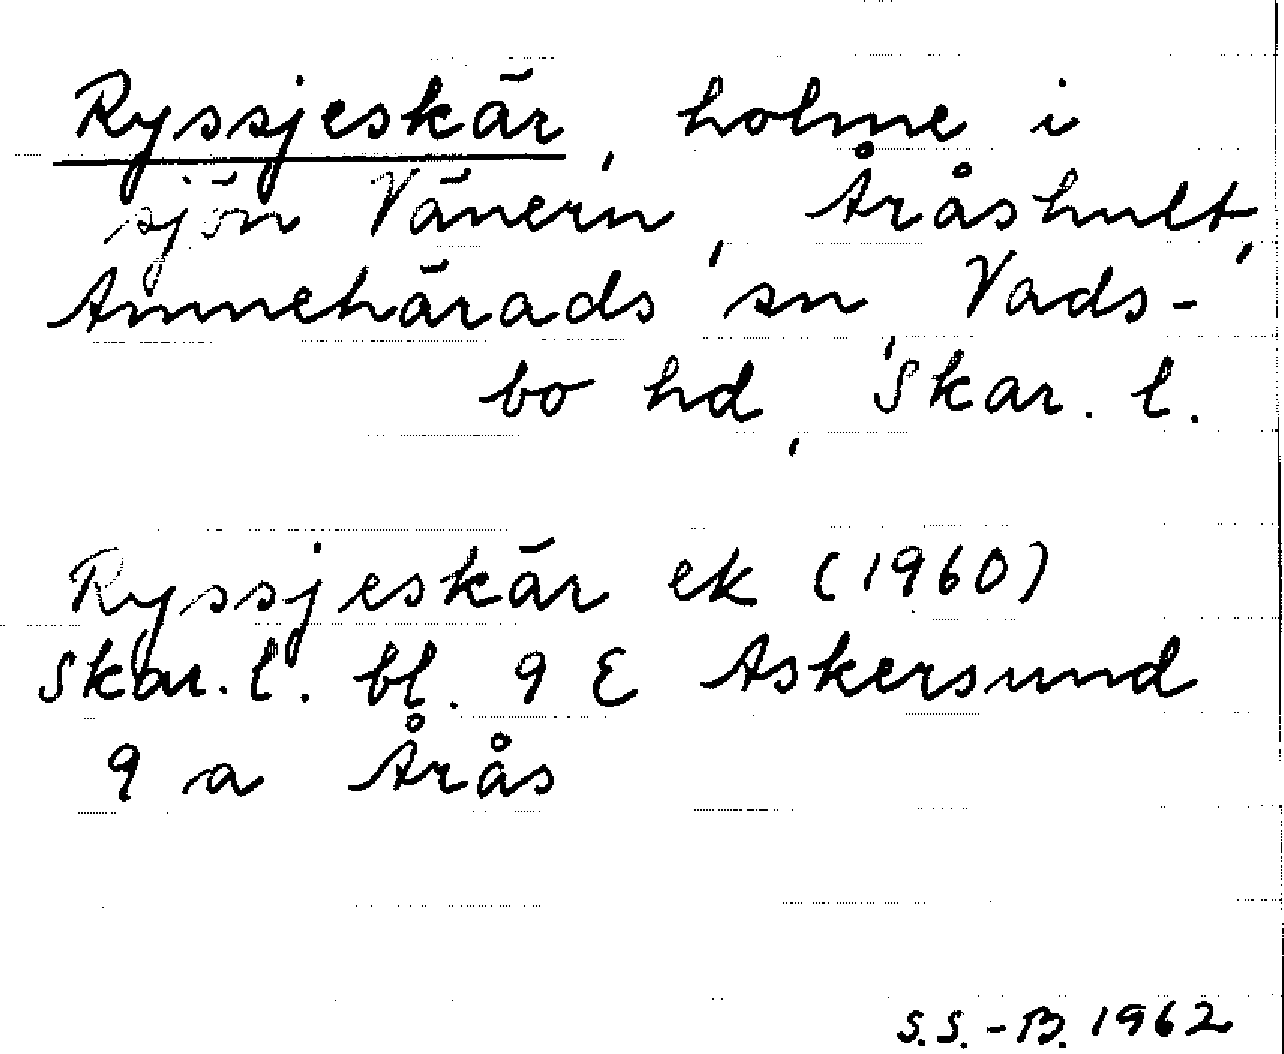 Ryssjeskär, holme i
sjön Vänern, Åråshult,
Amnehärads sn, Vads-
bo hd, Skar. l.
Ryssjeskär ek (1960)
Skar. l. bl. 9 E Askersund
9 a Årås
S.S.-B. 1962